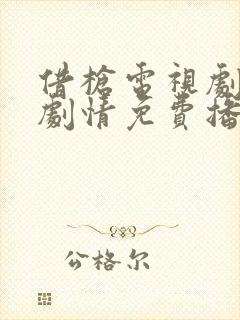 借槍電視劇
劇情免費播
公格尔